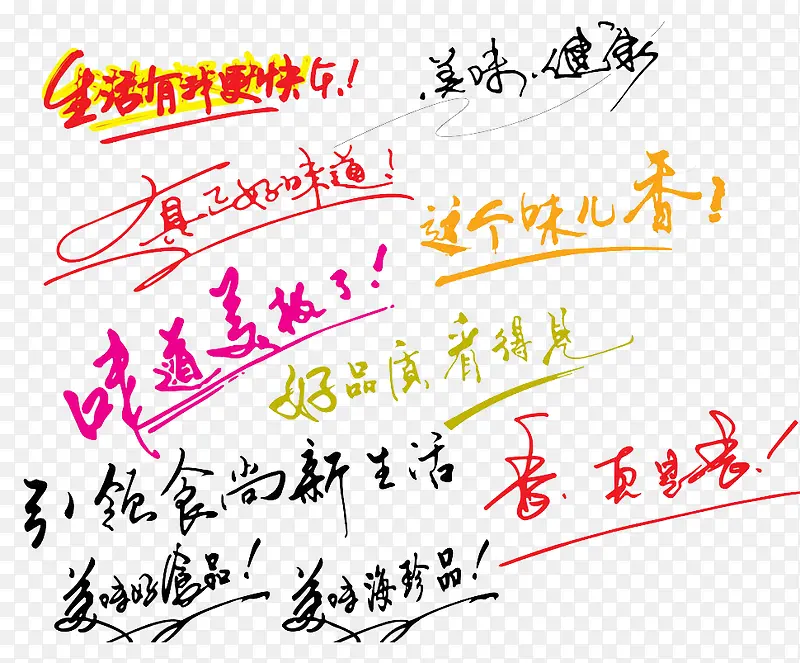 生活有我更快乐!
美味.健康
真正好味道!
这个味儿香!
味道美极了!
好品质看得见
引领食尚新生活
香.真是香!
美味好食品!
美味海珍品!